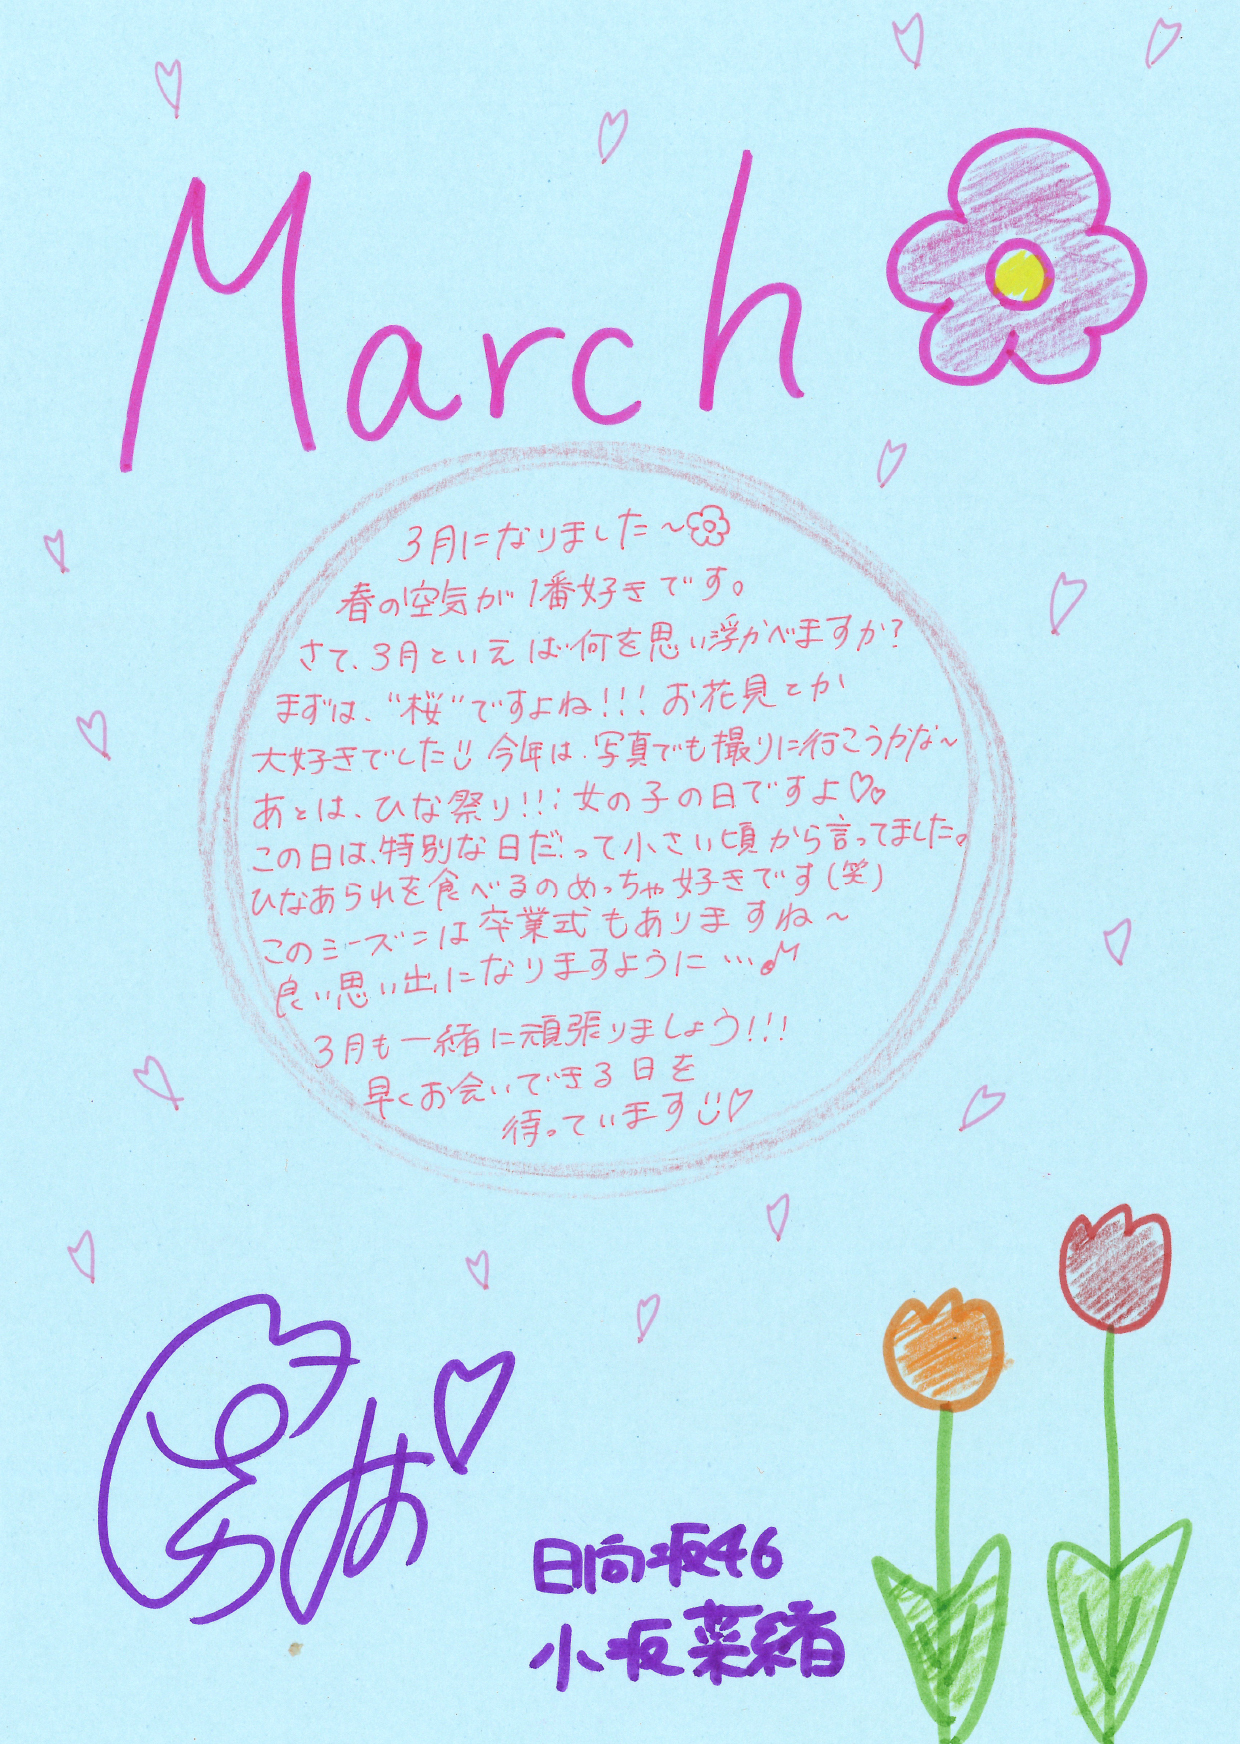 March
3月になりました〜
春の空気が1番好きです。
さて、3月といえば何を思い浮かべますか?
まずは、“桜“ですよね!!! お花見とか
大好きでした 今年は、写真でも撮りに行こうかな〜
あとは、ひな祭り!!! 女の子の日ですよ♡♡
この日は、特別な日だって小さい頃から言ってました。
ひなあられを食べるのめっちゃ好きです(笑)
このシーズンは卒業式もありますね〜
良い思い出になりますように…♪
3月も一緒に頑張りましょう!!!
早くお会いできる日を
待っています♡
日向坂46
小坂菜緒